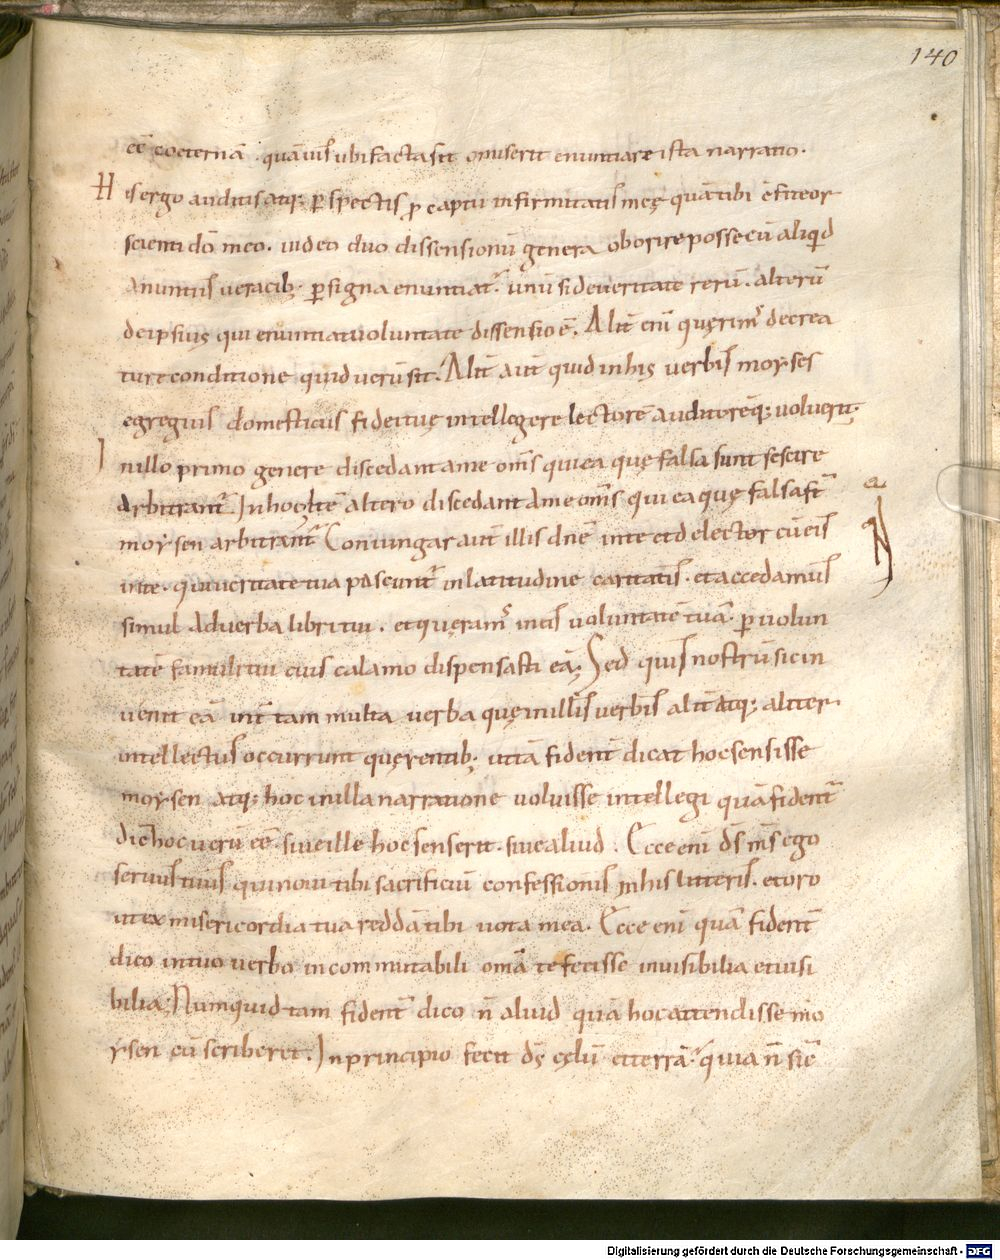 140
eē coeternā . quāuis ubi facta sit omiserit enuntiare ista narratio.
His ergo auditis atq; p̄spectis p̄ captu infirmitatis meę quā tibi c̄fiteor
scienti dō meo. uideo duo dissensionū genera oborire posse cū aliqid
A nuntiis ueracib; p̄ signa enuntiat᷑. unū si de ueritate rerū. alterū
de ipsius qui enuntiat uoluntate dissensio ē. Alit̄ eni᷑ quęrim᷑ de crea
turę conditione quid uerū sit. Alit̄ aut̄ quid in his uerbis moyses
egregius domesticus fidei tuę intellegere lectorē auditorēq; uoluerit.
In illo primo genere discedant a me om̄s qui ea quę falsa sunt se scire
Arbitrant᷑. In hoc ite᷑ altero discedant A me om̄s qui ea quę falsa st̄
moysen arbitrant᷑ Coniungar aut̄ illis dn̄e in te et delector cū eis
in te. qui ueritate tua pascunt᷑ in latitudine caritatis. et accedamus
simul Ad uerba libri tui. et quęram᷑ in eis uoluntatē tuā. p̄ uolun
tatē famuli tui cuius calamo dispensasti ea; Sed quis nostrū sic in
uenit eā int̄ tam multa uerba quę in illis uerbis alit̄ atq; aliter
intellectus occurrunt quęrentib; ut tā fident̄ dicat hoc sensisse
moysen atq; hoc in illa narratione uoluisse intellegi quā fident̄
dic̄ hoc uerū eē. siue ille hoc senserit. siue aliud. Ecce eni᷑ ds̄ ms̄ ego
seruus tuus qui uoui tibi sacrificiū confessionis in his litteris. et oro
ut ex misericordia tua reddā tibi uota mea. Ecce eni᷑ quā fident̄
dico in tuo uerbo incommutabili om̄a te fecisse inuisibilia et uisi
bilia; Numquid tam fident̄ dico n̄ aliud quā hoc attendisse mo
ysen cū scriberet. In principio fecit ds̄ cęlū et terrā. quia n̄ sic̄
Digitalisierung gefördert durch die Deutsche Forschungsgemeinschaft - DFG